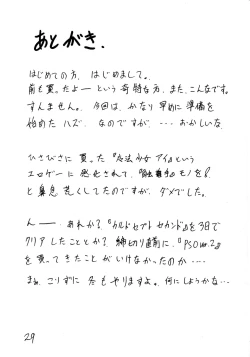 あとがき.
はじめての方、はじめまして。
前も買ったよーという奇特な方、また、こんなです。
すんません。今回は、かなり早めに準備を
始めたハズ、なのですが、…おかしいな.
ひさびさに買った『魔法少女アイ』という
エロゲーに感化されて、モノを!!
と鼻息荒くしてたのですが、ダメでした。
んー、あれか?『カルドセプトセカンド』を3日で
クリアしたこととか?締め切り直前に、『PSO ver.2』
を買ってきたことがいけなかったのか…
まぁ、こりずに冬もやりますよ。何にしようかな…
29